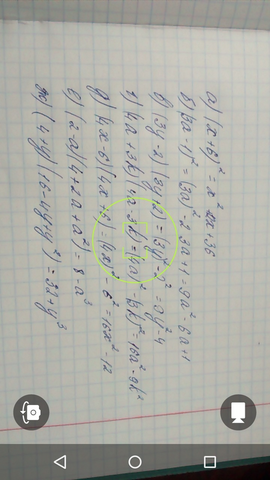 а) (x+6)² = x² 12x+36
б) (3a-1)² = (3a)² - 2·3a+1 = 9a² - 6a+1
в) (3y-2)(3y+2) = (3y)² - 2² = 9y² - 4
г) (4a+3k)(4a-3k) = (4a)² - (3k)² = 16a² - 9k²
д) (4x-6)(4x+6) = (4x)² - 6² = 16x² - 12
е) (2-a)(4+2a+a²) = 8-a³
ж) (4+y)(16-4y+y²) = 32+y³